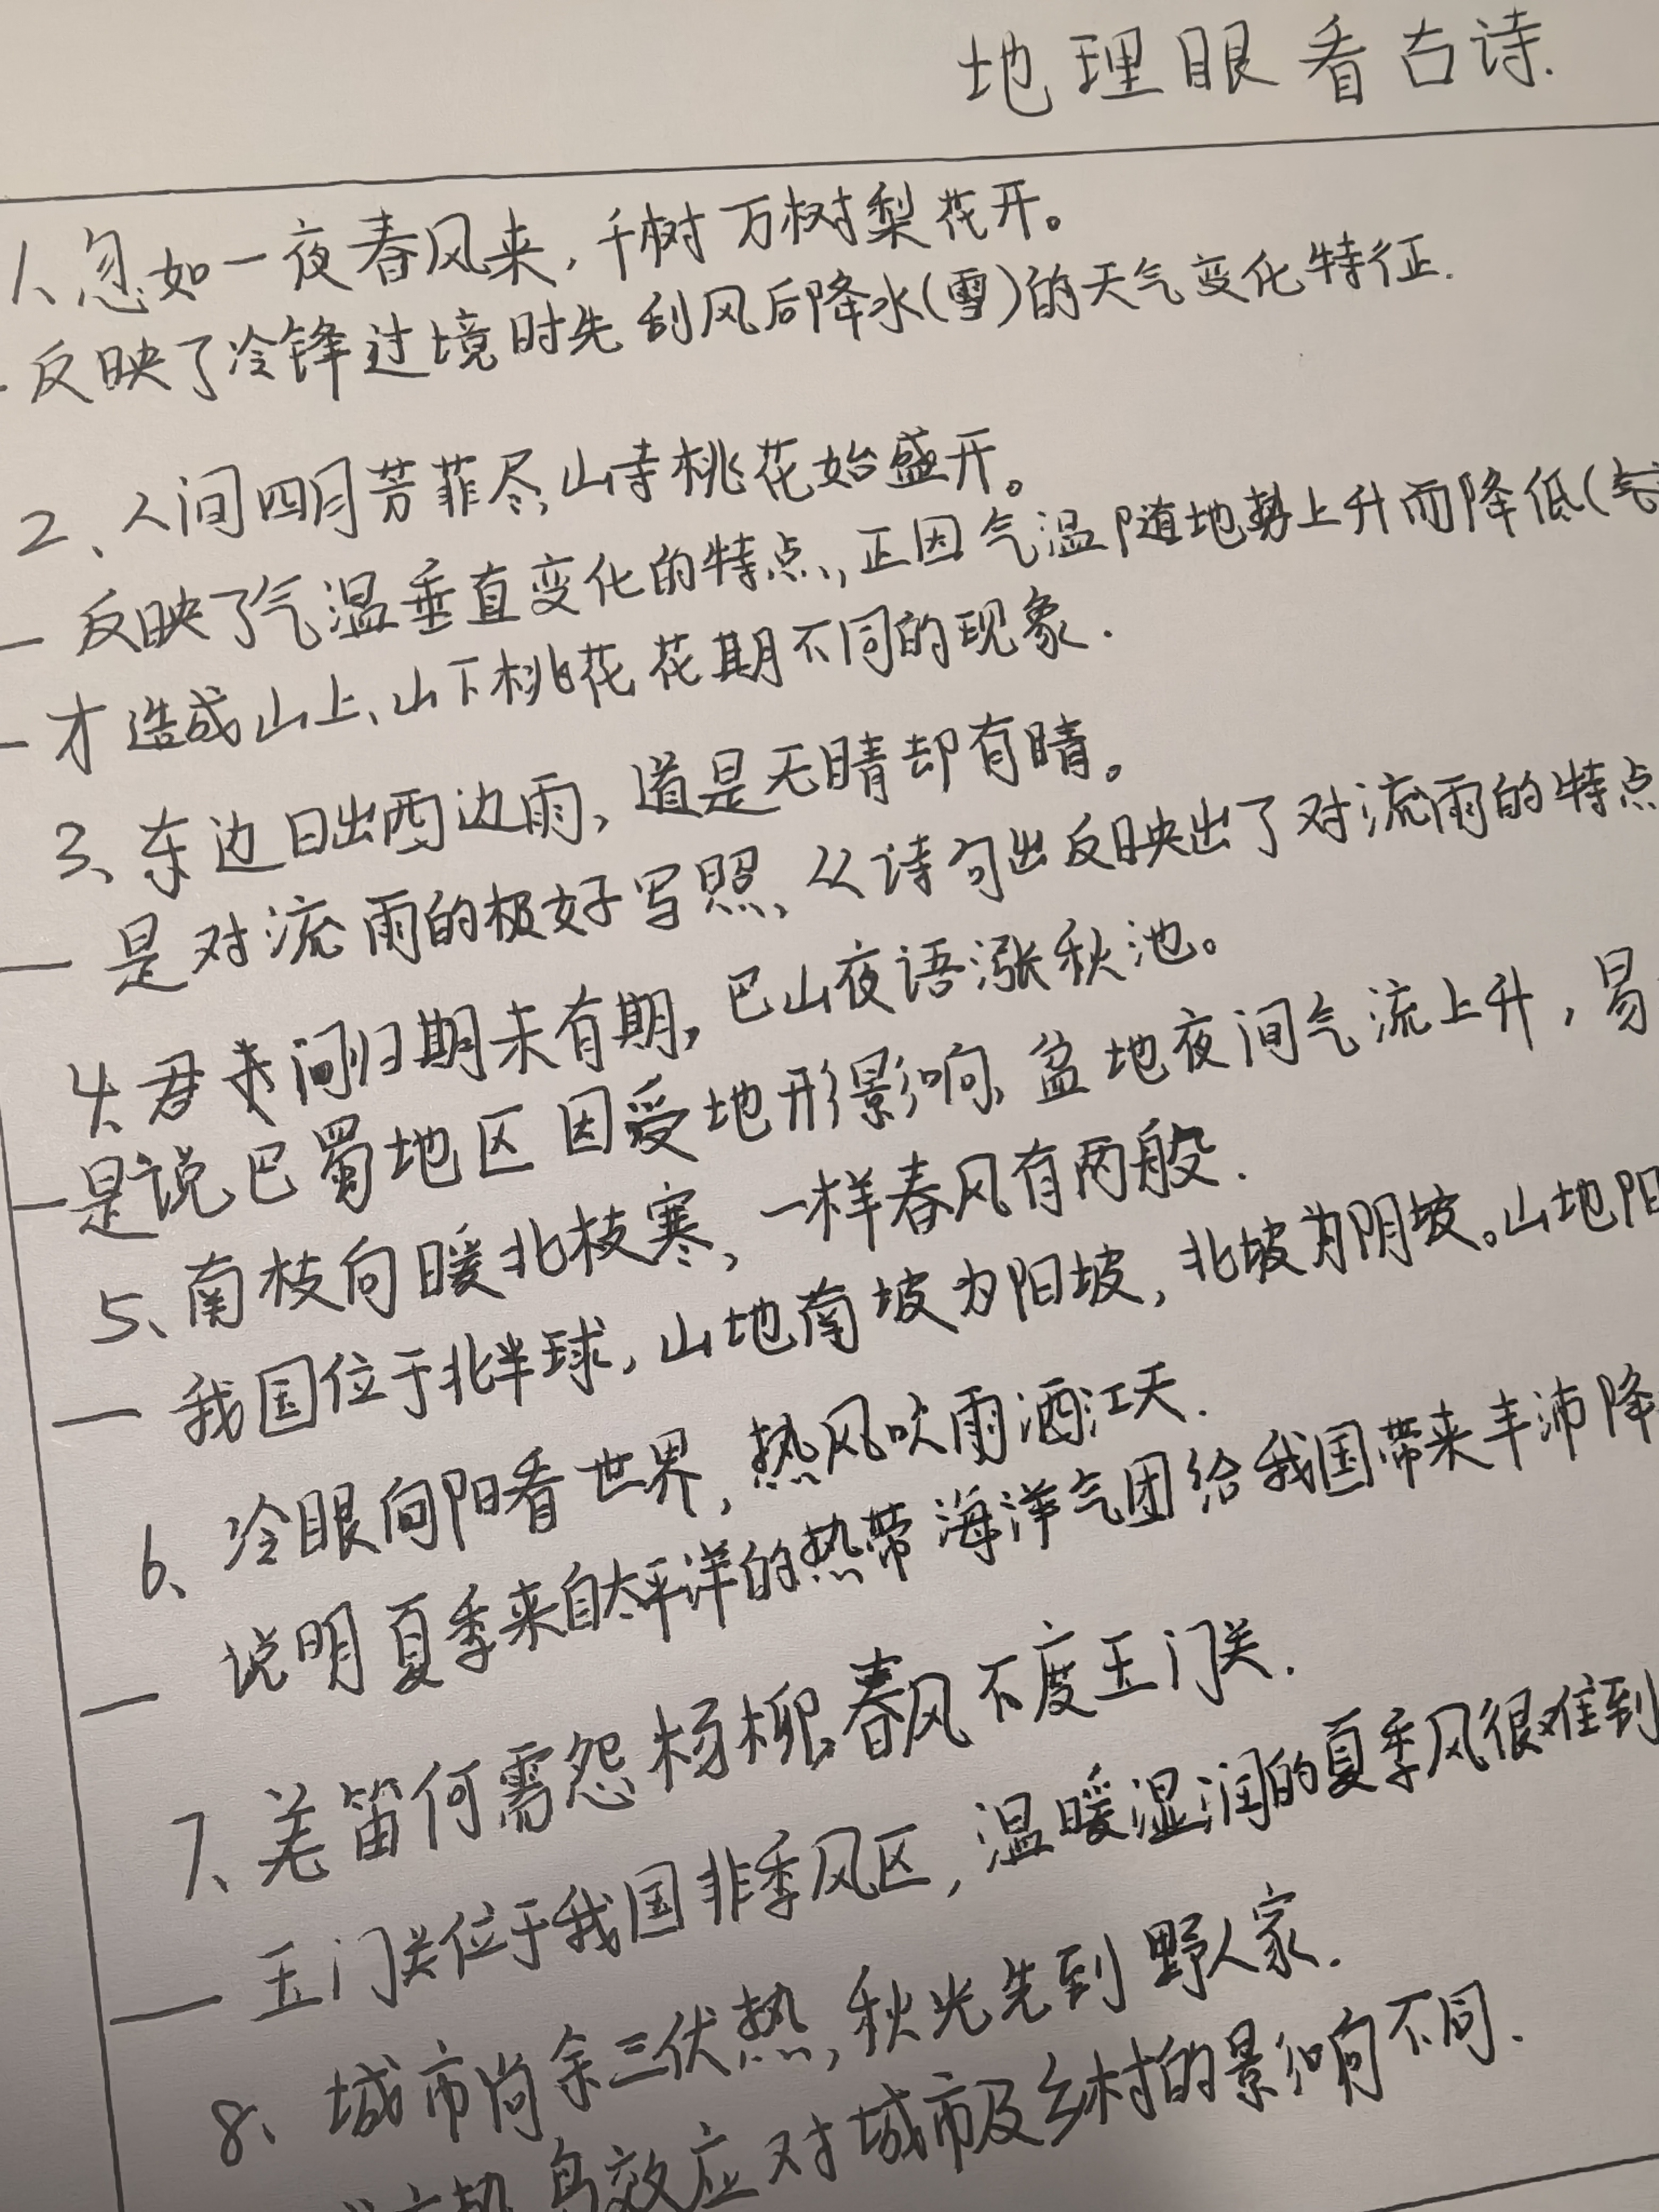 地理眼看古诗.
1、忽如一夜春风来，千树万树梨花开。
反映了冷锋过境时先刮风后降水(雪)的天气变化特征.
2、人间四月芳菲尽，山寺桃花始盛开。
反映了气温垂直变化的特点，正因气温随地势上升而降低(
才造成山上、山下桃花花期不同的现象.
3、东边日出西边雨，道是无晴却有晴。
是对流雨的极好写照，从诗句出反映出了对流雨的特点
4、君问归期未有期，巴山夜语涨秋池。
是说巴蜀地区因受地形影响，盆地夜间气流上升，易
5、南枝向暖北枝寒，一样春风有两般.
我国位于北半球，山地南坡为阳坡，北坡为阴坡。山地阳
6、冷眼向阳看世界，热风吹雨洒江天.
说明夏季来自太平洋的热带海洋气团给我国带来丰沛降
7、羌笛何需怨杨柳，春风不度玉门关.
玉门关位于我国非季风区，温暖湿润的夏季风很难到
8、城市尚余三伏热，秋光先到野人家.
热岛效应对城市及乡村的影响不同.